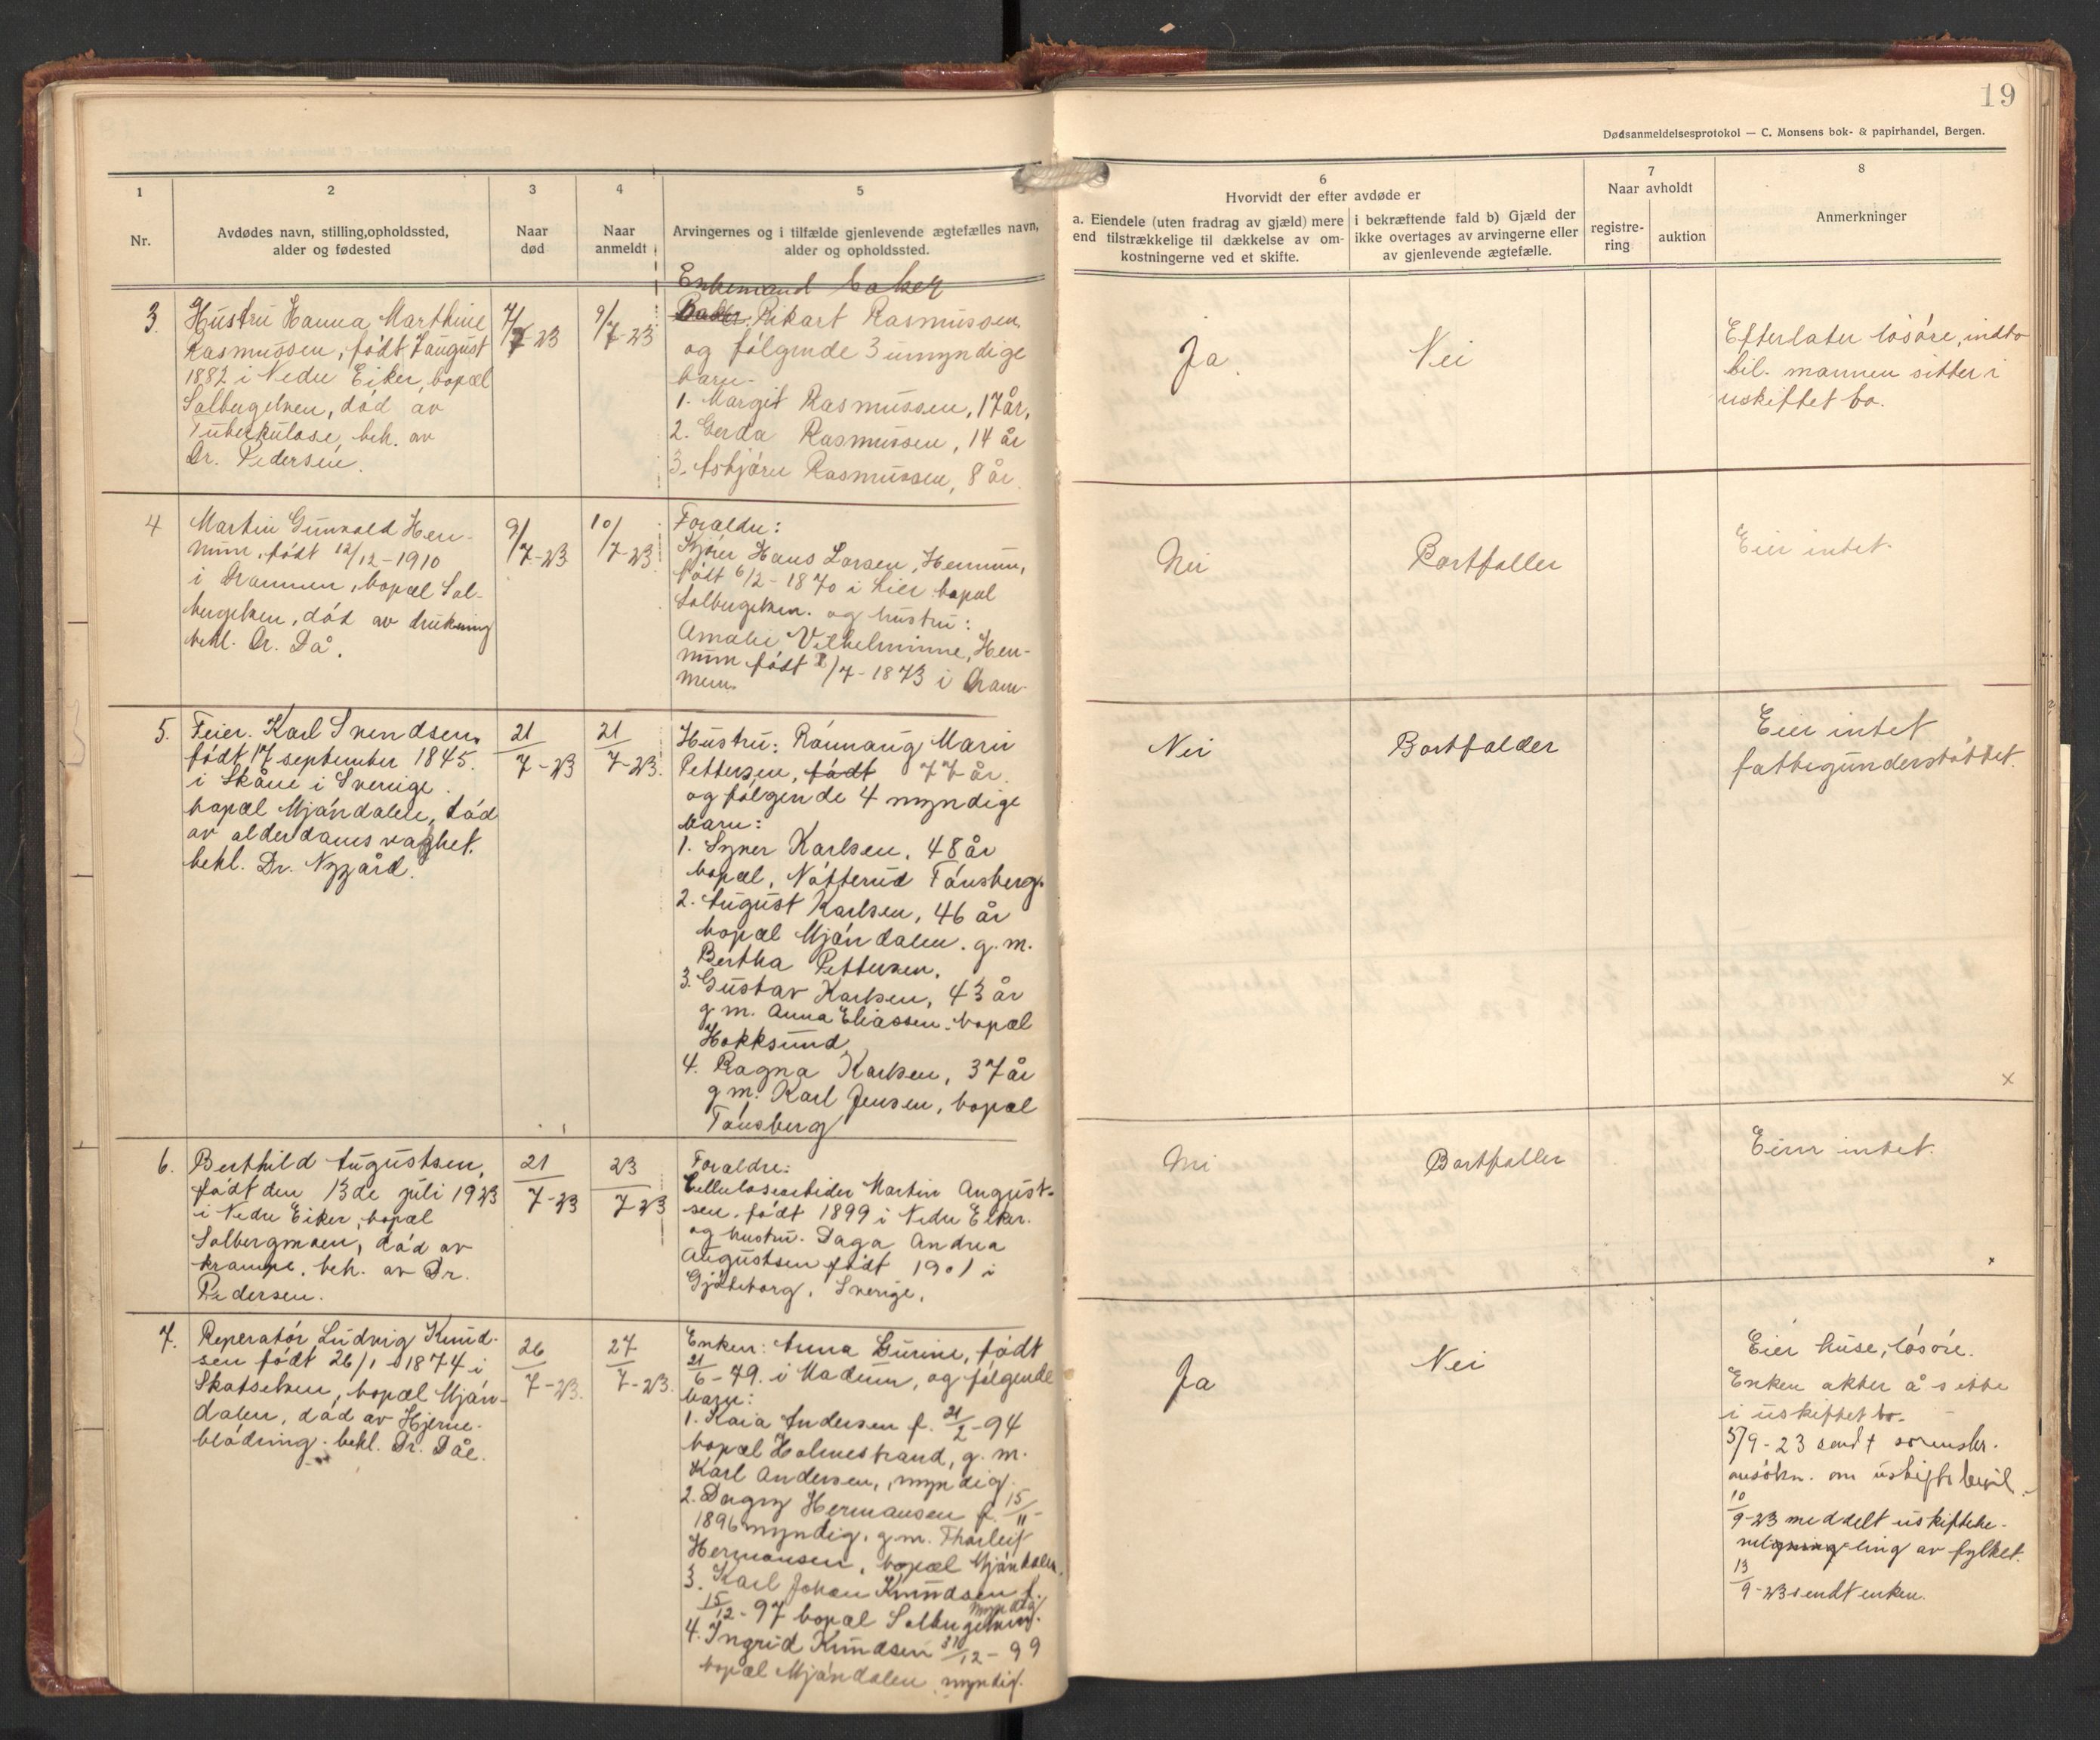 19
Dødsanmeldelsesprotokol — C. Monsens bok- & papirhandel, Bergen.
1
Nr.
2
Avdødes navn, stilling, opholdssted,
alder og fødested
3
Naar
død
4
Naar
anmeldt
5
Arvingernes og i tilfælde gjenlevende ægtefælles navn,
alder og opholdssted.
6
Hvorvidt der efter avdøde er
a. Eiendele (uten fradrag av gjæld) mere
end tilstrækkelige til dækkelse av om-
kostningerne ved et skifte.
i bekræftende fald b) Gjæld der
ikke overtages av arvingerne eller
av gjenlevende ægtefælle.
7
Naar avholdt
registre-
ring
auktion
8
Anmerkninger
3.
Hustru Hanna Marthine
Rasmussen, født 7 august
1882 i Nedre Eiker, bopæl
Solbergelven, død av
Tuberkulose, beh. av
Dr. Pedersen.
7/7-23
9/7-23
Enkemand baker
Baker Rikart Rasmussen
og følgende 3 umyndige
barn.
1. Margit Rasmussen, 17 år,
2. Gerda Rasmussen, 14 år
3. Asbjørn Rasmussen, 8 år.
Ja.
Nei
Efterlater løsøre, indbo
bil. mannen sitter i
uskiftet bo.
4
Martin Gunvald Hen-
num, født 12/12-1910
i Drammen, bopæl Sol-
bergelven, død av drukning
behl. Dr. Då.
9/7-23
10/7-23
Foreldre:
Kjører Hans Larsen, Hennum,
født 6/2-1870 i Lier bopæl
Solbergelven. og hustru:
Amalie Vilhelmine, Hen-
num født /7-1873 i Dram-
men.
Nei
Bortfaller
Eier intet.
5.
Feier. Karl Svendsen,
født 17 september 1845.
i Skåne i Sverige.
bopæl Mjøndalen, død
av alderdoms vaghet.
behl. Dr. Nygård.
21/7-23
21/7-23.
Hustru: Rønnaug Marie
Pettersen, født 77 år.
og følgende 4 myndige
barn:
1. Syver Karlsen, 48 år
bopæl, Nøtterud Tønsberg.
2. August Karlsen, 46 år
bopæl Mjøndalen. g. m.
Bertha Pettersen.
3. Gustav Karlsen, 43 år
g m. Anna Eliassen. bopæl
Hokksund
4. Ragna Karlsen, 37 år
g m. Karl Jensen, bopæl
Tønsberg
Nei
Bortfalder
Eier intet
fattigunderstøttet.
x
6.
Berthild Augustsen,
født den 13de juli 1923
i Nedre Eiker, bopæl
Solbergmoen, død av
krampe, beh. av Dr.
Pedersen.
21/7-23
23/7-23
Foreldre:
Cellulosearbeider Martin August-
sen. født 1899 i Nedre Eiker.
og hustru. Daga Andrea
Augustsen født 1901 i
Gjøteborg, Sverige.
Nei
Bortfaller
Eier intet.
x
7.
Reperatør Ludvig Knud-
sen født 26/1-1874 i
Skotselven, bopæl Mjøn-
dalen, død av Hjerne-
blødning. behl. Dr. Dåe.
26/7-23.
27/7-23.
Enken: Anna Gurine, født
21/6-79. i Modum, og følgende
barn:
1. Kaia Andersen f. 21/2-94
bopæl Holmestrand, g. m.
Karl Andersen, myndig.
2. Dagny Hermansen f. 15/11-
1896 myndig, g m. Thorleif
Hermansen, bopæl Mjøndalen.
3. Karl Johan Knudsen f.
15/12-97 bopæl Solbergelven. myndig
4. Ingrid Knudsen 31/12-99
bopæl Mjøndalen myndig.
Ja
Nei
Eier huse, løsøre.
Enken akter å sitte
i uskiftet bo.
5/9-23 sendt sorenskr.
ansøkn. om uskiftebevil.
10/9-23 meddelt uskiftebe-
ling av fylket.
13/9-23 sendt enken.